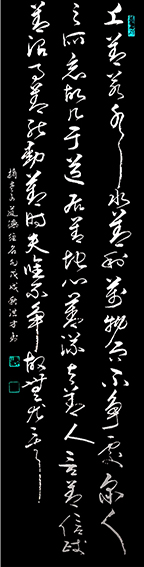 上善若水水善利萬物而不爭處眾人
之所惡故几于道居善地心善淵與善人言善信政
善治事善能動善時夫唯不爭故無尤
摘老子道德經名句戊戌秋洪才書